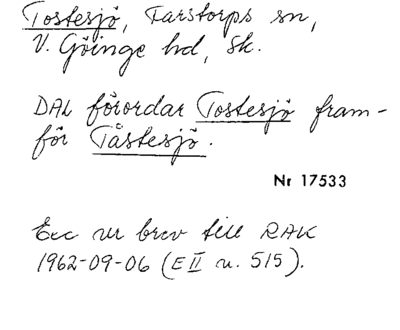 Tostesjö, Farstorps sn,
V. Göinge hd, Sk.
DAL förordar Tostesjö fram-
för Tåstesjö.
Nr 17533
Exc ur brev till RAK
1962-09-06 (E II u. 515).